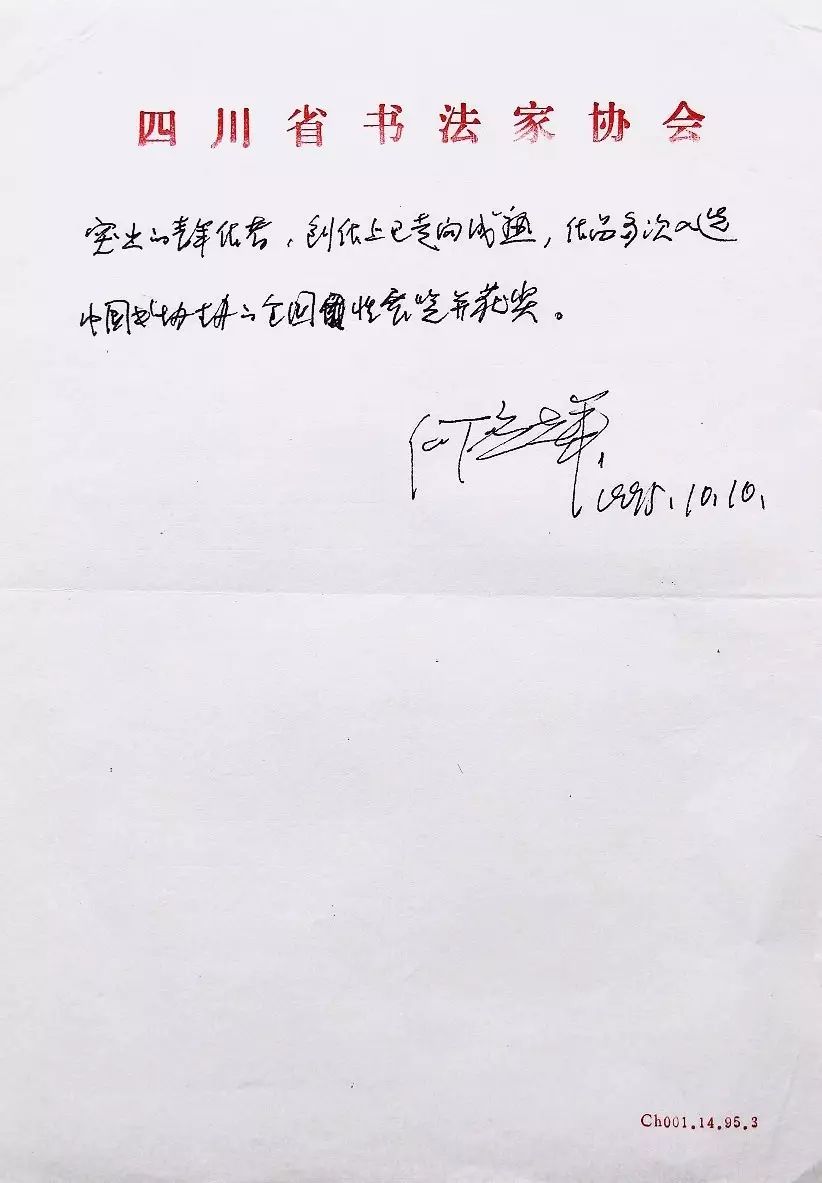 四川省书法家协会
突出的青年作者，创作上已走向成熟，作品多次入选
中国书协主办的全国性展览并获奖。
何应辉
1995.10.10.
Ch001.14.95.3